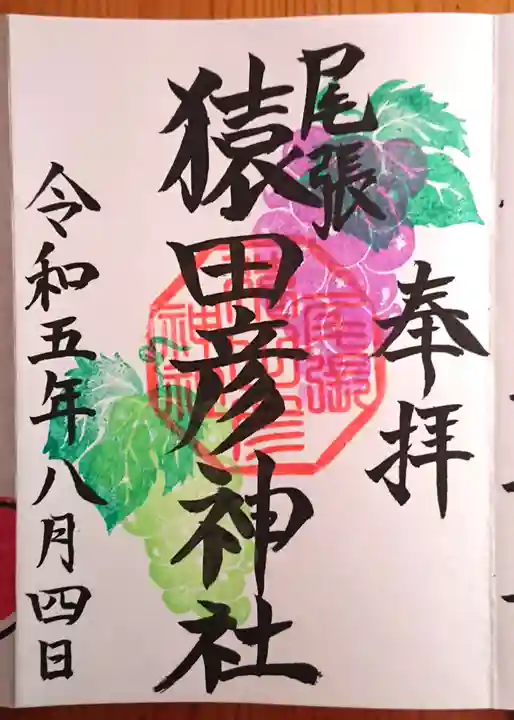 奉拝
尾張
猿田彦神社
令和五年八月四日
尾張
猿田彦
神社